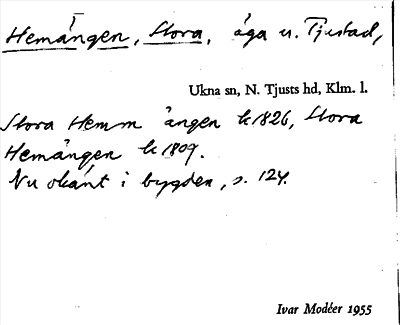 Hemängen, Stora, äga u. Tjustad,
Ukna sn, N. Tjusts hd, Klm. l.
Stora Hemm ängen k 1826, Stora
Hemängen k 1809.
Nu okänt i bygden, s. 124.
Ivar Modéer 1955